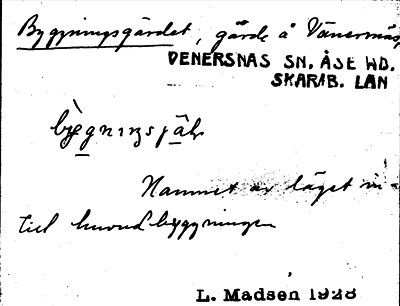 Byggningsgärdet, gärde å Vänernäs,
VENERSNAS SN. ÅSE HD.
SKARAB. LAN
bygningsjäḷ
Namnet av läget in-
till huvudbyggningen
L. Madsén 1928